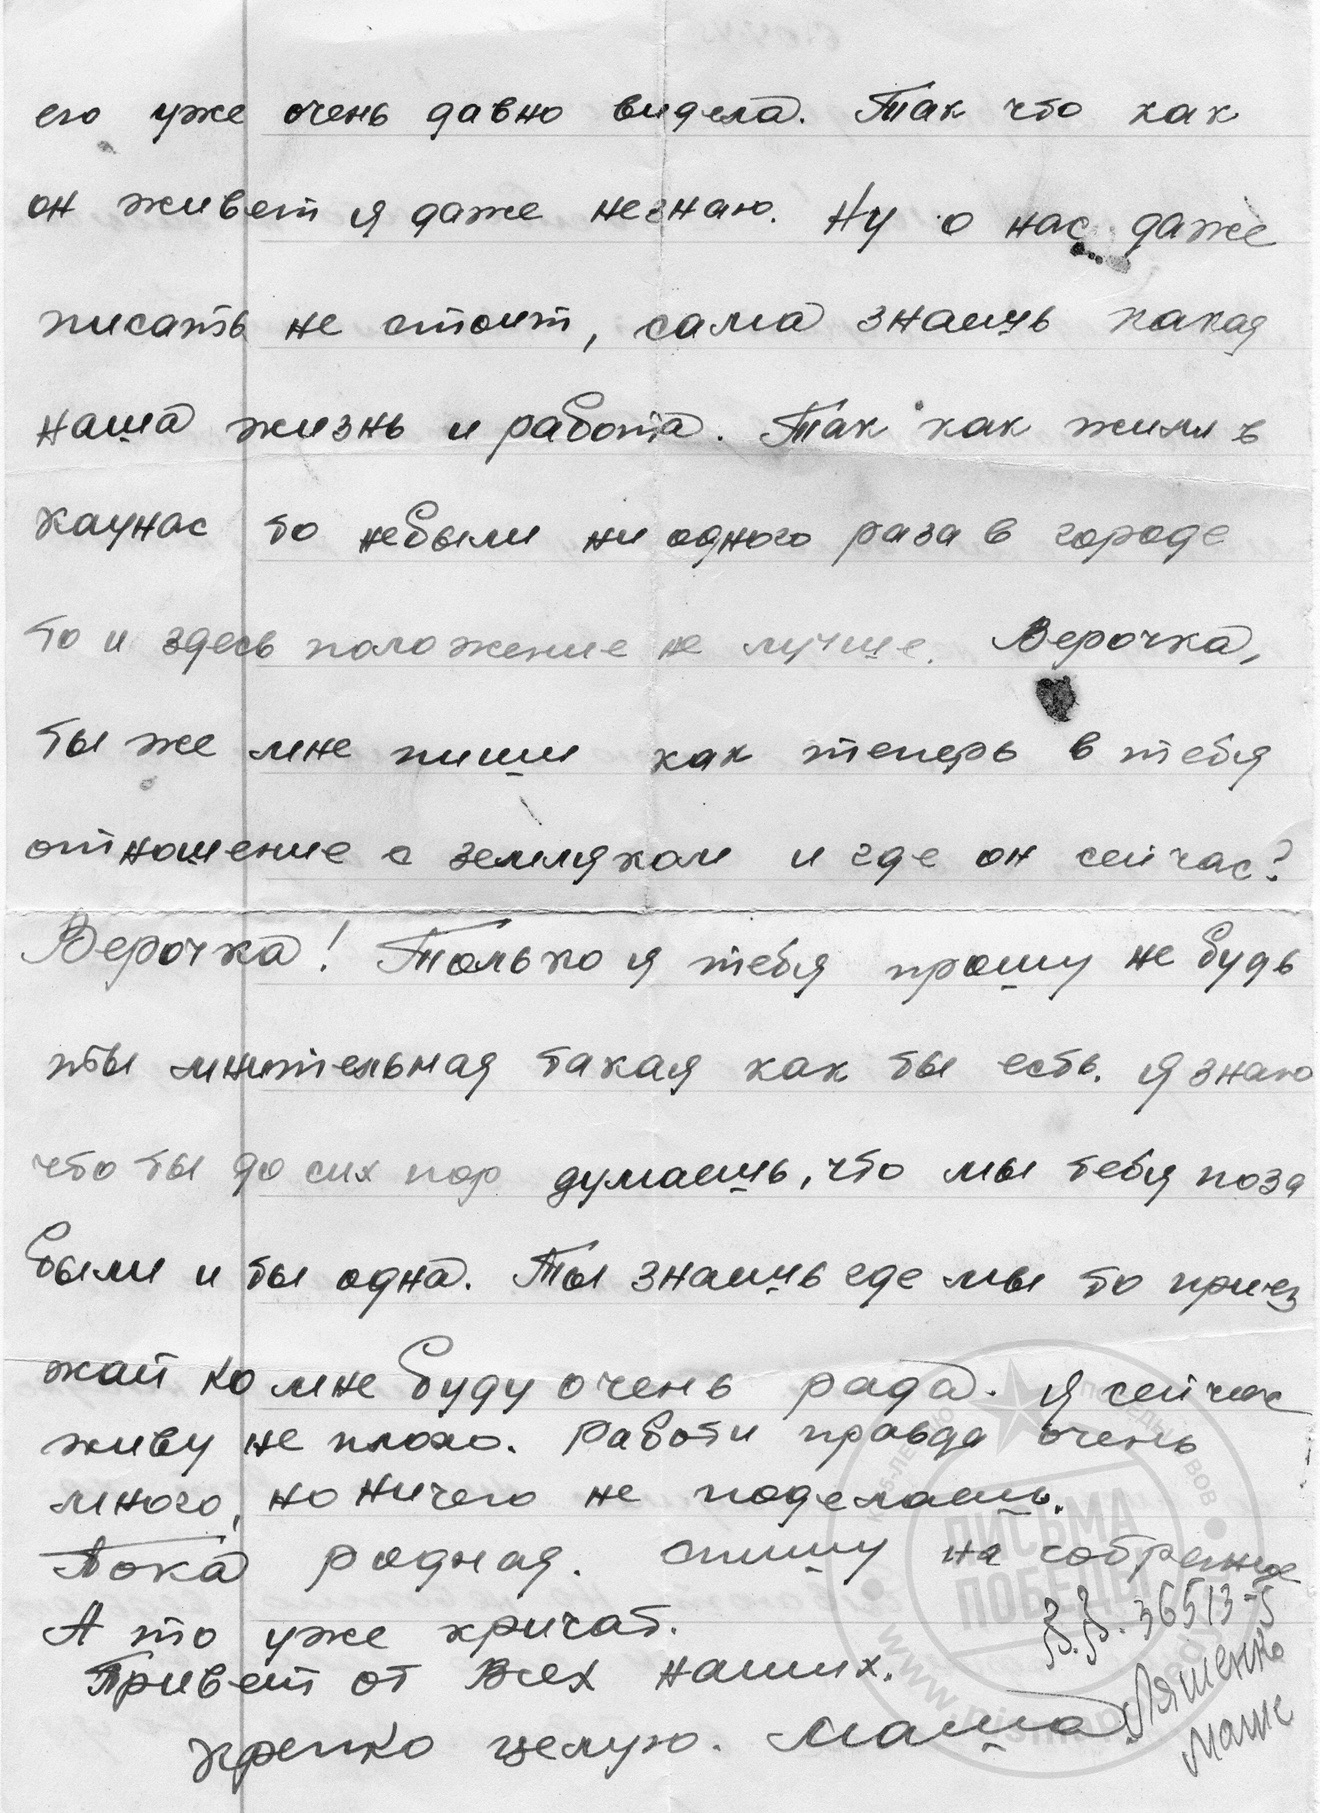 его уже очень давно видела. Так что как
он живет я даже незнаю. Ну о нас даже
писать не стоит, сама знаишь какая
наша жизнь и работа. Так как жили в
каунас то небыли ни одного раза в городе
то и здесь положение не лучше. Верочка,
ты же мне пиши как теперь в тебя
отношение с земляком и где он сейчас?
Верочка! Только я тебя прошу не будь
ты мнительная такая как ты есть. Я знаю
что ты до сих пор думаешь, что мы тебя поза
были и ты одна. Ты знаишь где мы то приез
жай ко мне буду очень рада. Я сейчас
живу не плохо. Работи правда очень
много, но ничего не поделаешь.
Пока родная. спишу на собрание
А то уже кричат.
Привет от Всех наших.
крепко целую. Маша
В.Ч. 36513-Б
Ляшенко
Маше
К 65-ЛЕТИЮ ПОБЕДЫ В ВОВ
ПИСЬМА
ПОБЕДЫ